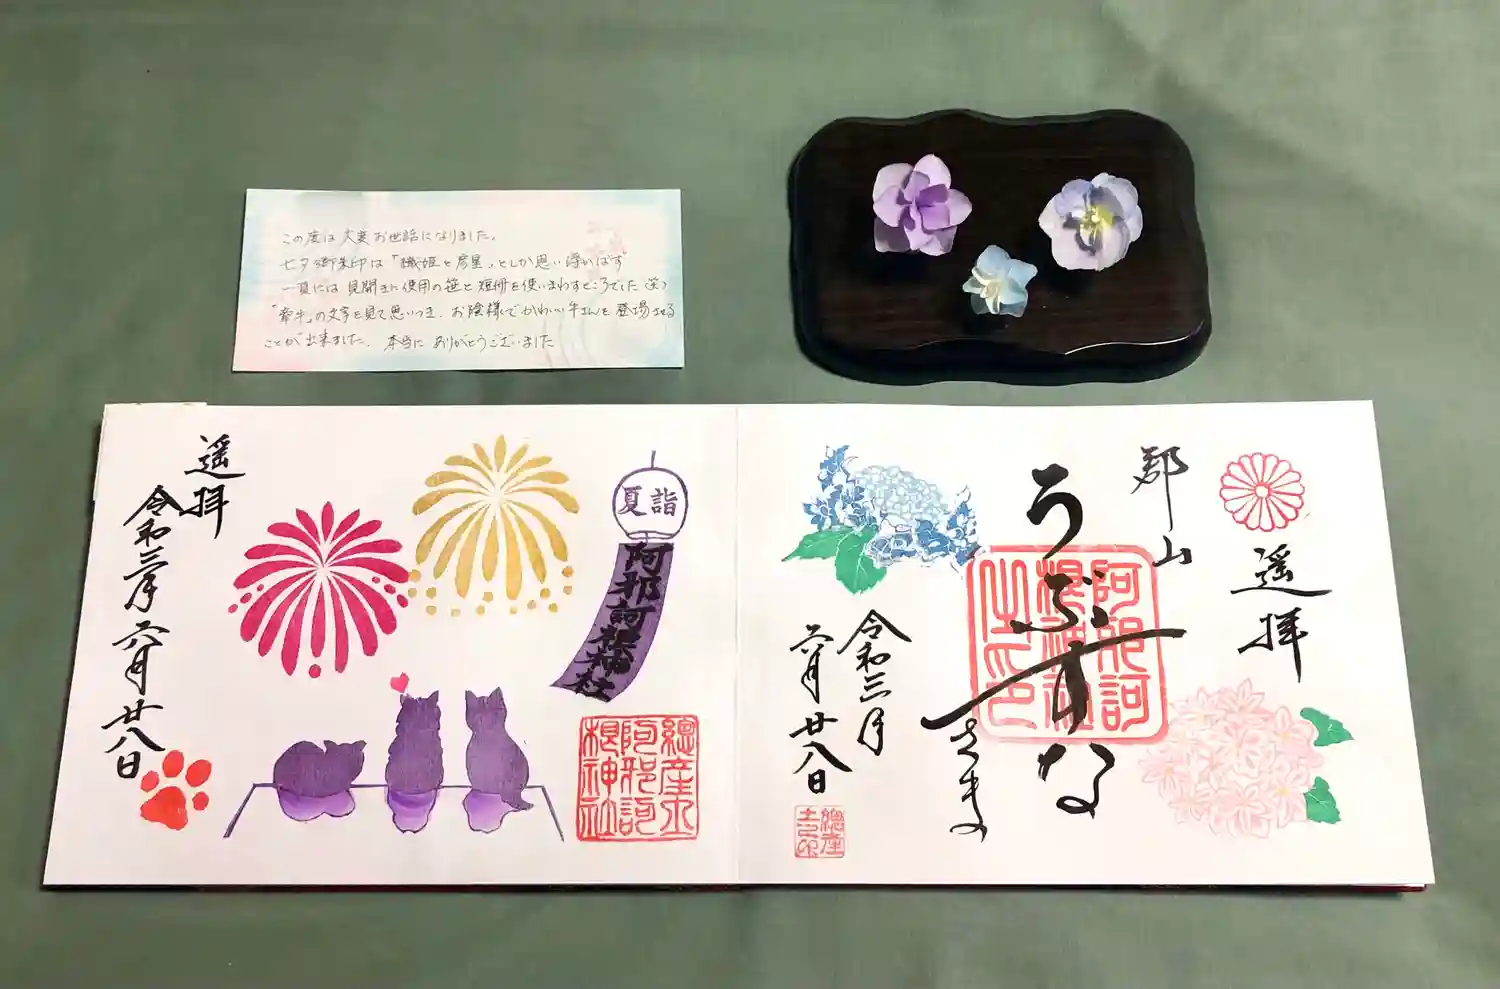 この度は大変お世話になりました。
七夕御朱印は「織姫と彦星」としか思い浮かばず
一頁には見開きに使用の笹と短冊を使いまわすところでした(笑)
「牽牛」の文字を見て思いつき、お陰様でかわいい牛さんを登場させる
ことが出来ました。本当にありがとうございました
郡山
遥拝
うぶすな
さま
阿邪訶
根神社
之印
令和三年
六月廿八日
總産
土之印
夏詣
阿邪訶根神社
遥拝
令和三年六月廿八日
總産土
阿邪訶
根神社